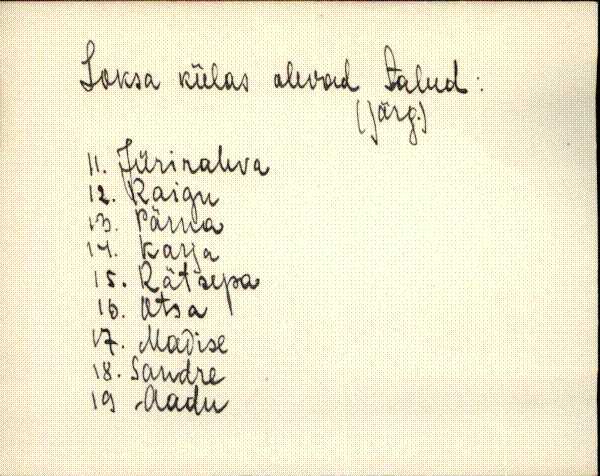 Loksa külas olevad talud:
(järg.)
11. Jürirahva
12. Raigu
13. Pärna
14. Karja
15. Rätsepa
16. Otsa
17. Madise
18. Sandre
19 Aadu